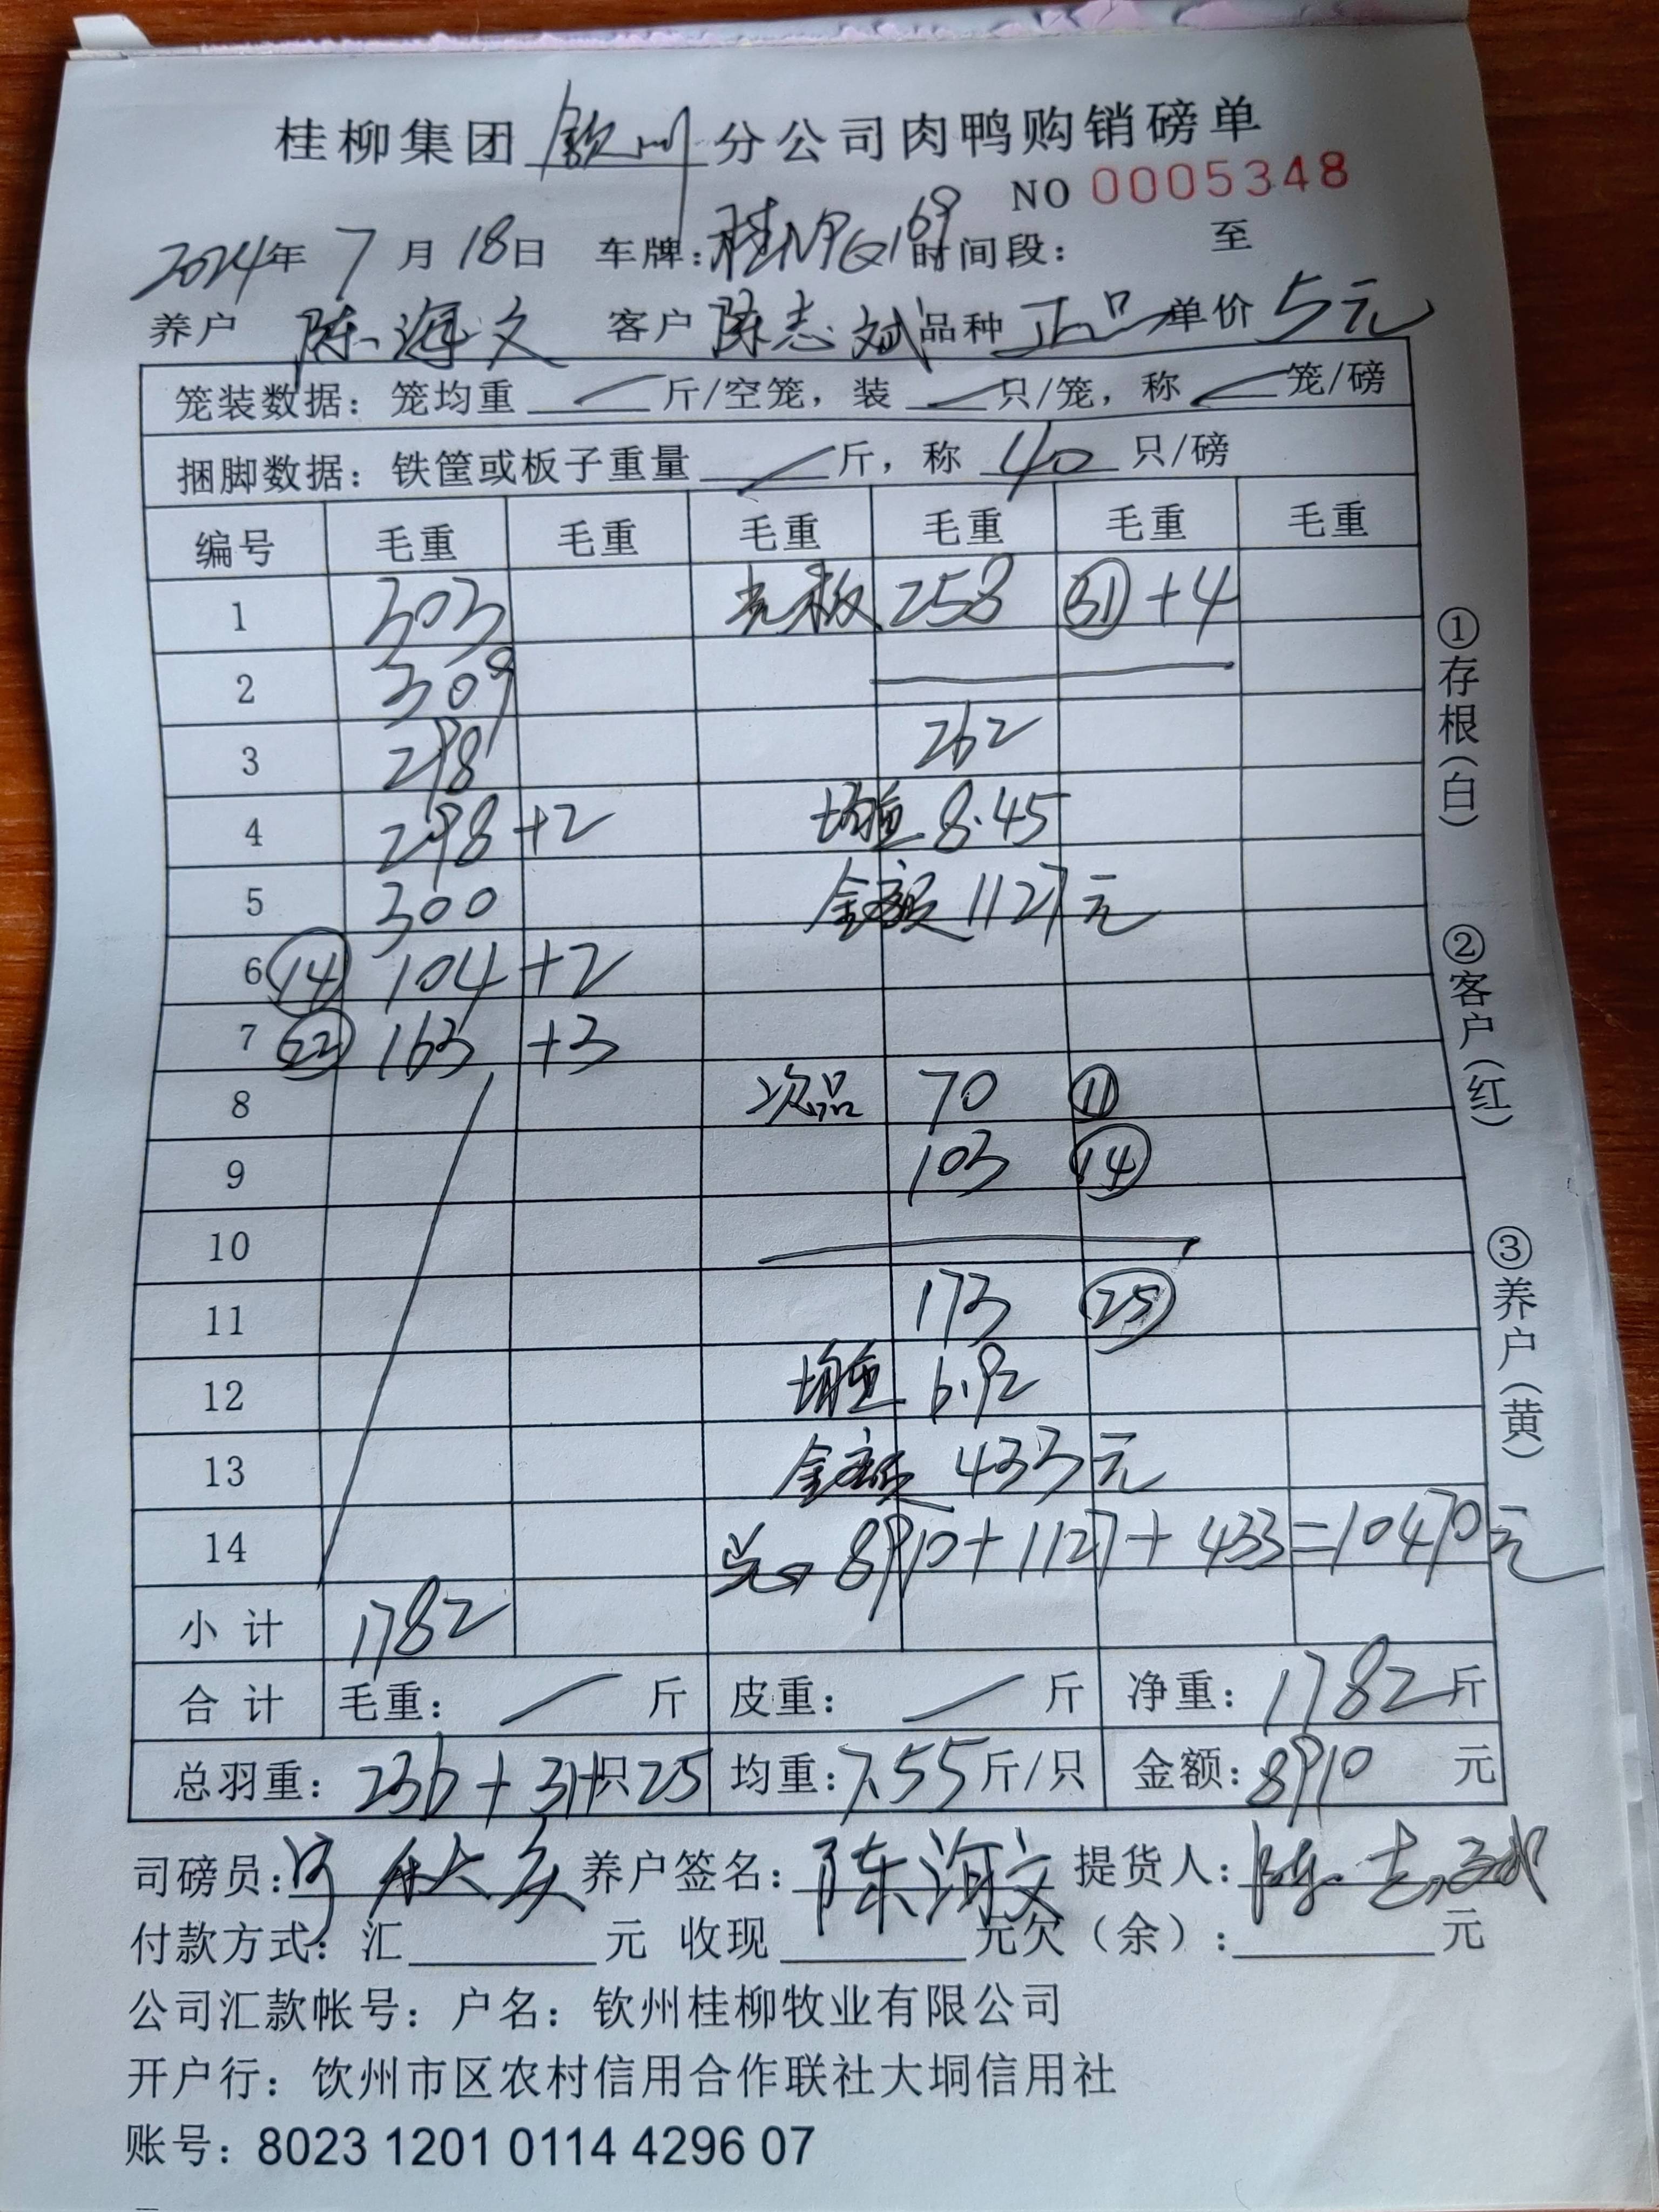 桂柳集团 钦州 分公司肉鸭购销磅单
NO 0005348
2024年 7 月 18日 车牌: 时间段: 至
养户 陈海文 客户 陈志斌 品种 正品 单价 5元
笼装数据: 笼均重 斤/空笼, 装 只/笼, 称 笼/磅
捆脚数据: 铁筐或板子重量 斤, 称 40 只/磅
编号 毛重 毛重 毛重 毛重 毛重 毛重
1 303 光板 258 31 +4
2 309
3 298 262
4 298 +2 均重 8.45
5 300 金额 1127元
6 14 104 +2
7 22 163 +3
8 次品 70 11
9 103 14
10
11 173 25
12 均重 6.92
13 金额 433元
14 总→ 8910+1127+433=10470元
小计 1782
合计 毛重: 斤 皮重: 斤 净重: 1782斤
总羽重: 236+31+只25 均重: 7.55斤/只 金额: 8910 元
司磅员: 养户签名: 陈海文 提货人: 陈志斌
付款方式: 汇 元 收现 元欠(余): 元
公司汇款帐号: 户名: 钦州桂柳牧业有限公司
开户行: 钦州市区农村信用合作联社大垌信用社
账号: 8023 1201 0114 4296 07
①存根(白)
②客户(红)
③养户(黄)